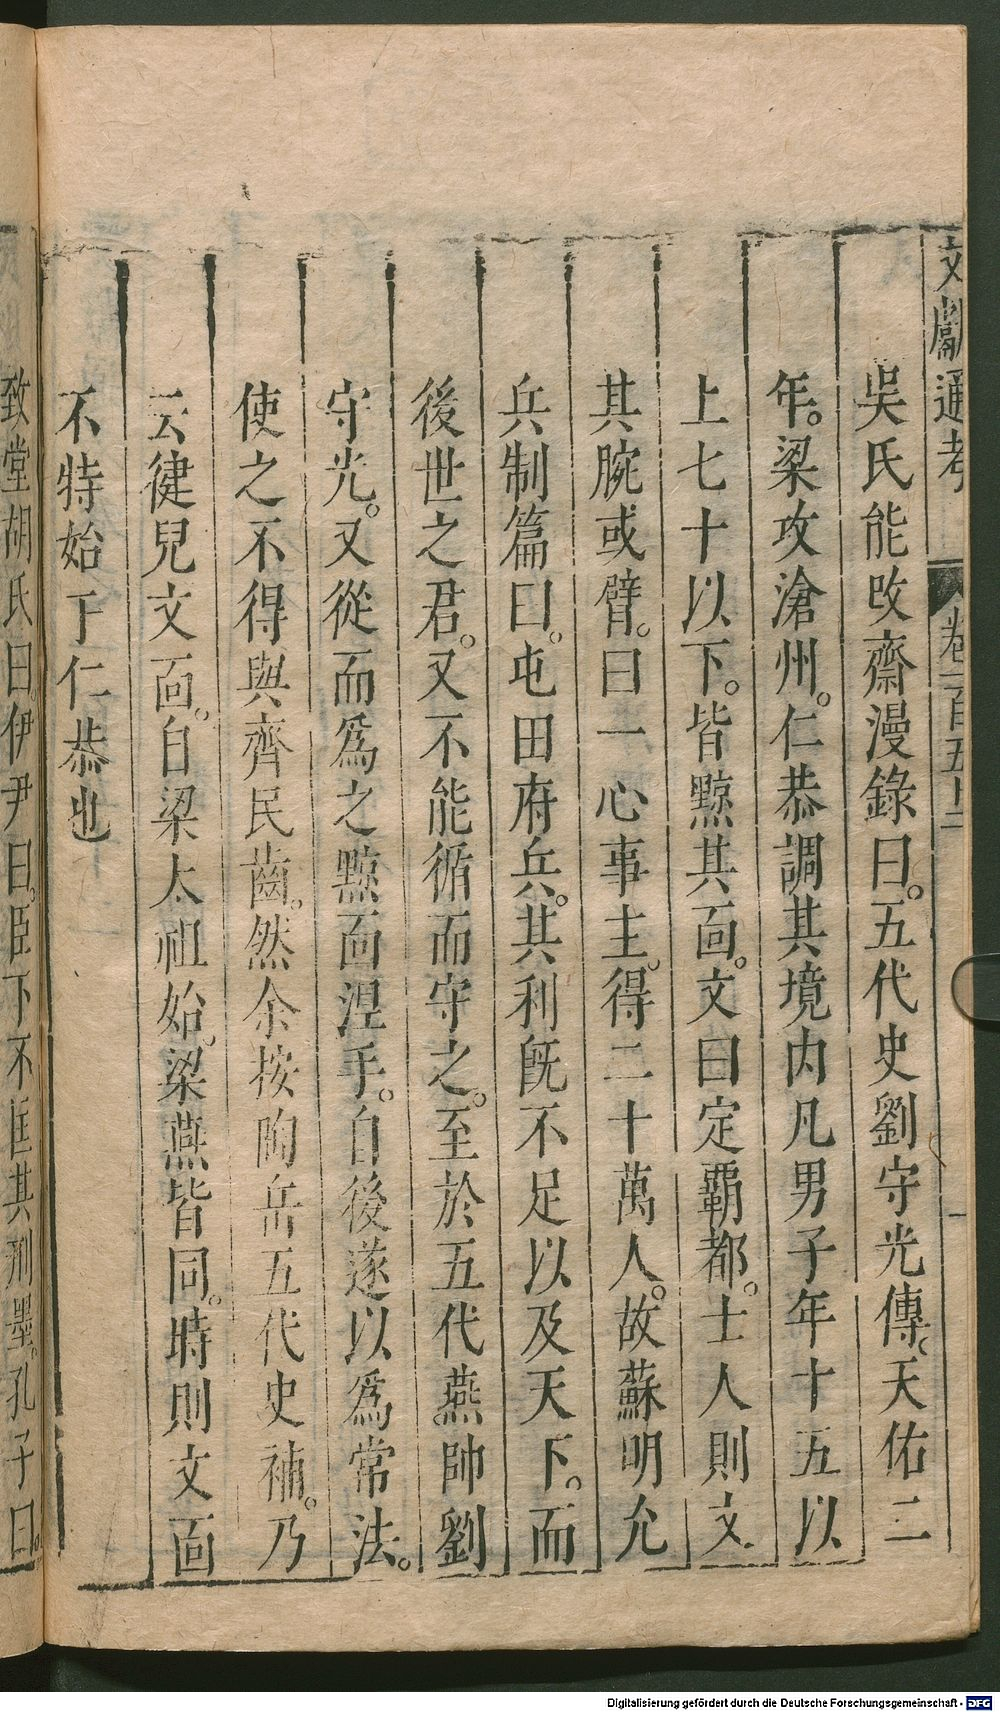 文獻通考 卷一百五十二
吳氏能改齋漫錄曰。五代史劉守光傳。天佑二
年。梁攻滄州。仁恭調其境內凡男子年十五以
上七十以下。皆黥其面。文曰定霸都。士人則文
其腕或臂。曰一心事主。得二十萬人。故蘇明允
兵制篇曰。屯田府兵。其利旣不足以及天下。而
後世之君。又不能循而守之。至於五代燕帥劉
守光。又從而爲之黥面涅手。自後遂以爲常法。
使之不得與齊民齒。然余按陶岳五代史補。乃
云健兒文面。自梁太祖始。梁燕皆同。時則文面
不特始于仁恭也
致堂胡氏曰伊尹曰。臣下不匡其刑墨。孔子曰。
Digitalisierung gefördert durch die Deutsche Forschungsgemeinschaft - DFG